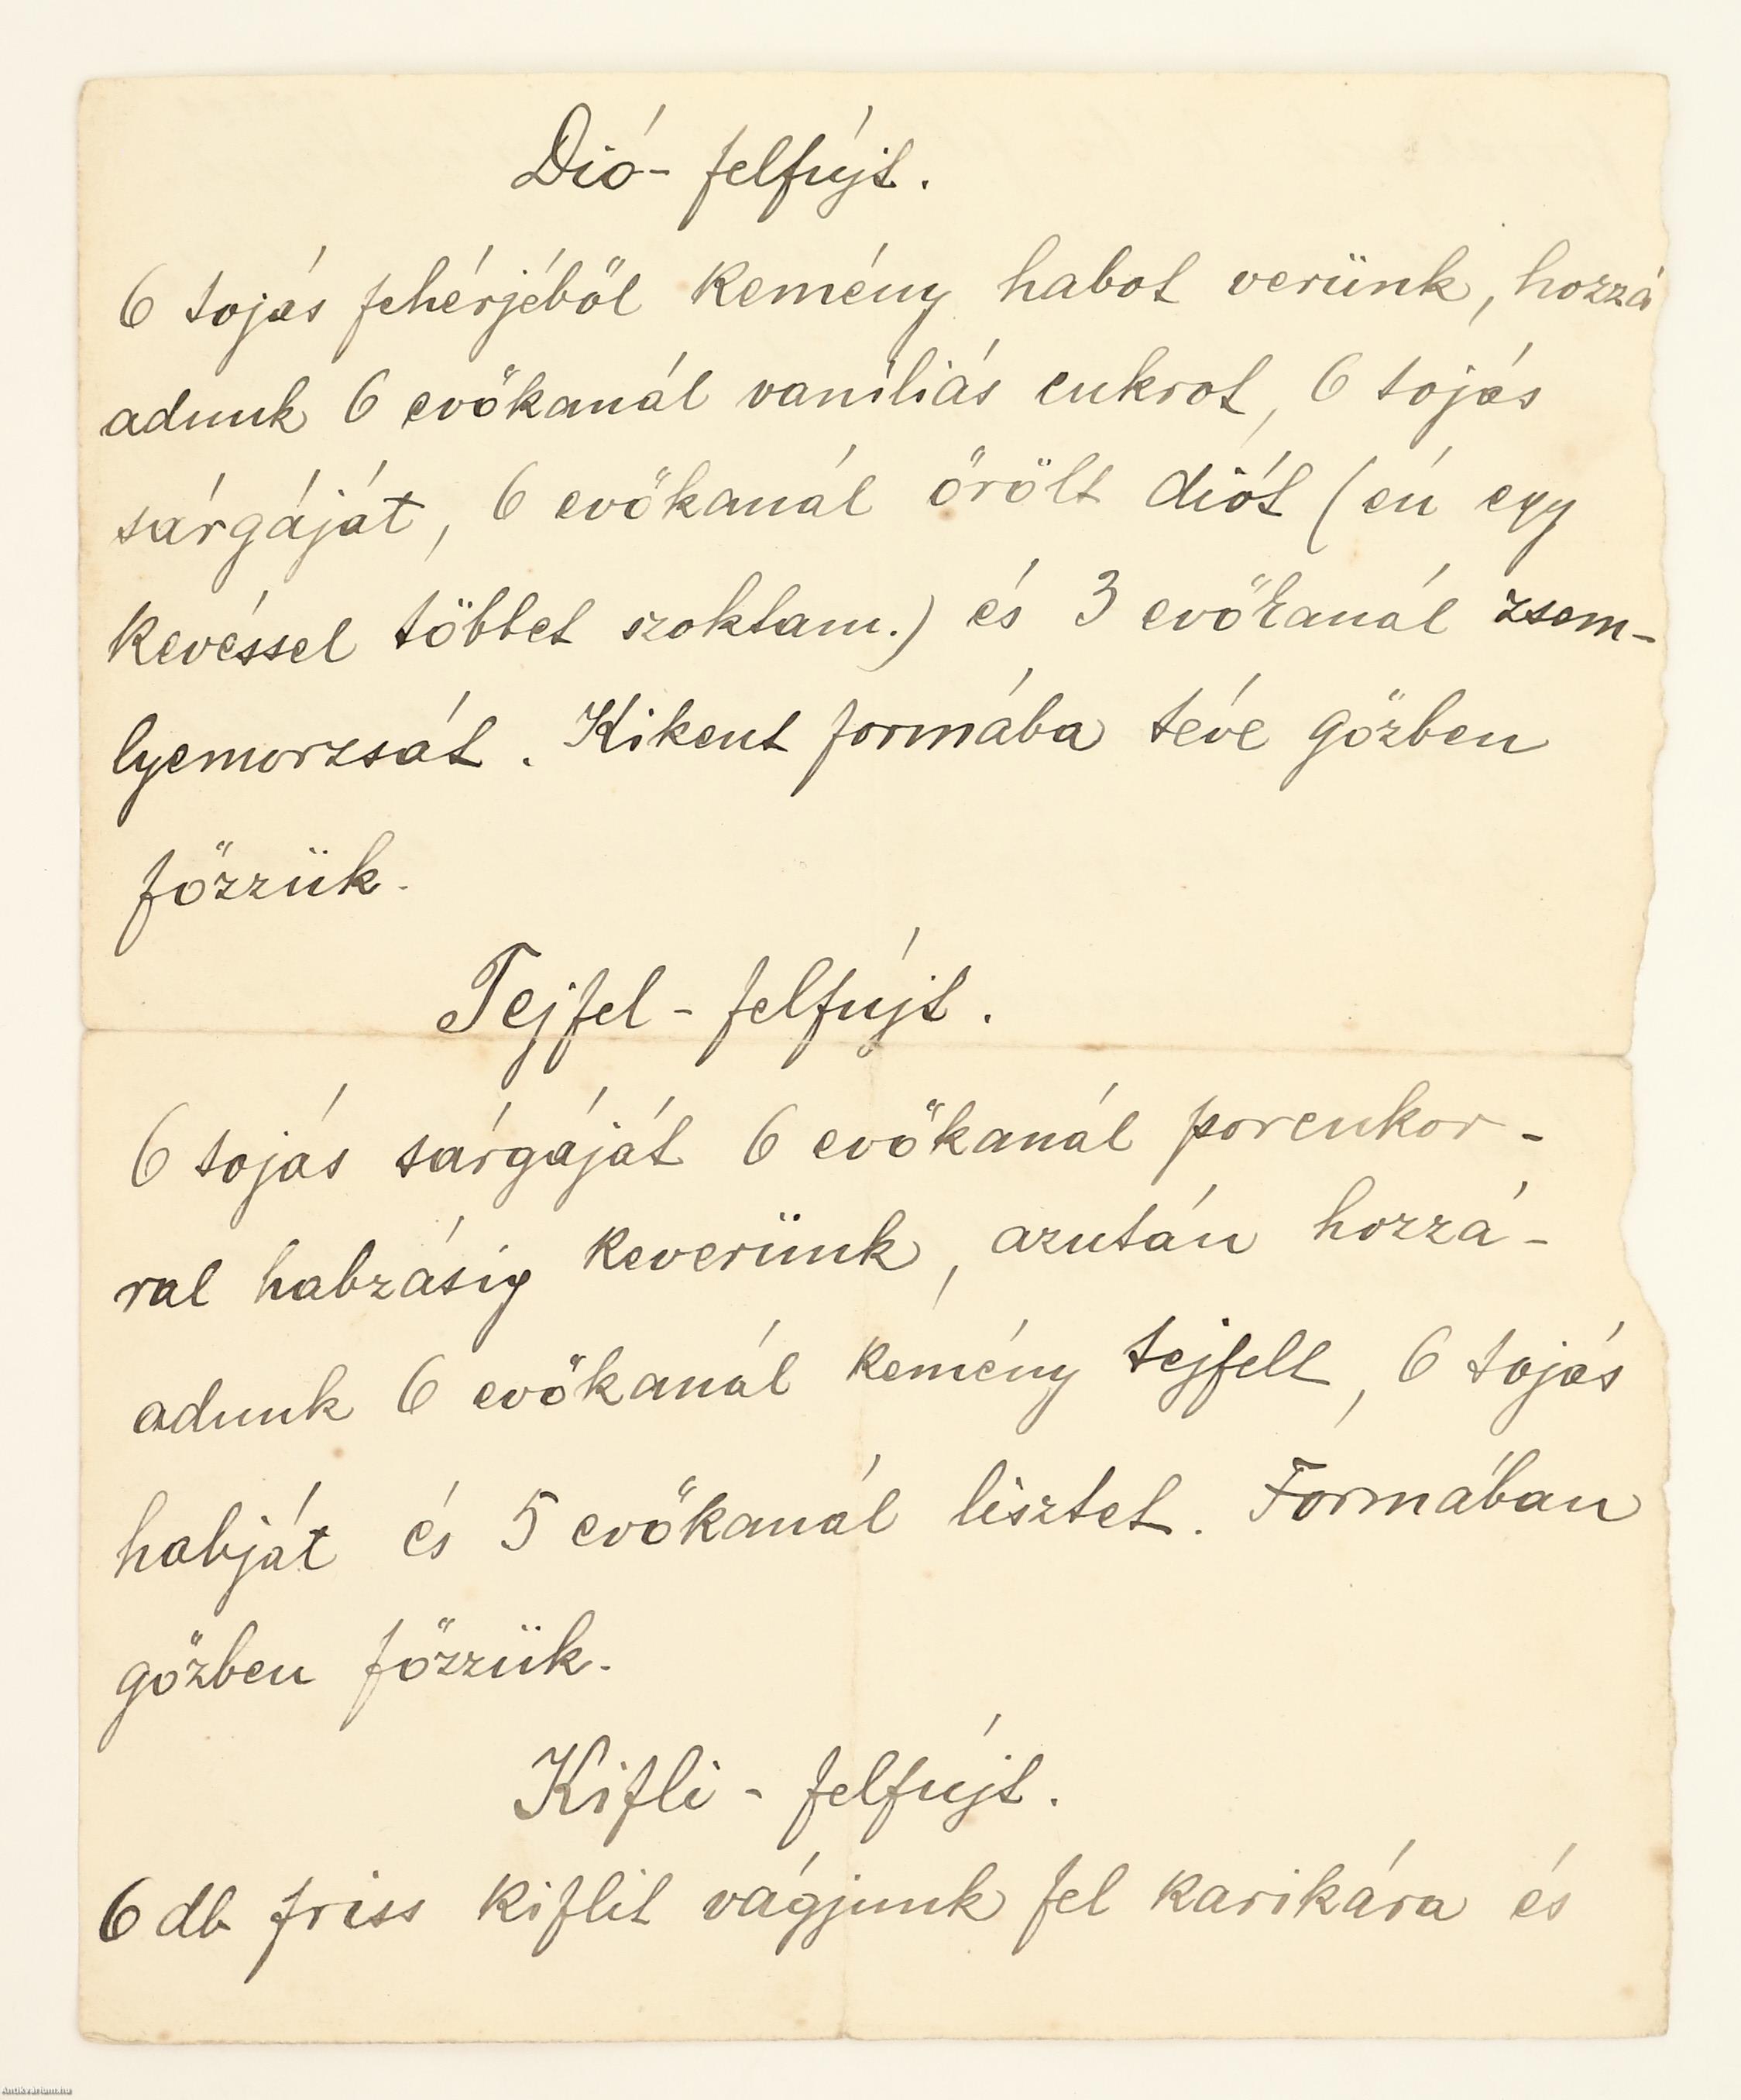 Dió- felfújt.
6 tojás fehérjéből kemény habot verünk, hozzá
adunk 6 evőkanál vaníliás cukrot, 6 tojás
sárgáját, 6 evőkanál őrölt diót (én egy
kevéssel többet szoktam.) és 3 evőkanál zsem-
lyemorzsát. Kikent formába téve gőzben
főzzük.
Tejfel - felfújt.
6 tojás sárgáját 6 evőkanál porcukor-
ral habzásig keverünk, azután hozzá-
adunk 6 evőkanál kemény tejfelt, 6 tojás
habját és 5 evőkanál lisztet. Formában
gőzben főzzük.
Kifli - felfújt.
6 db friss kiflit vágjunk fel karikára és
Antikvarium.hu